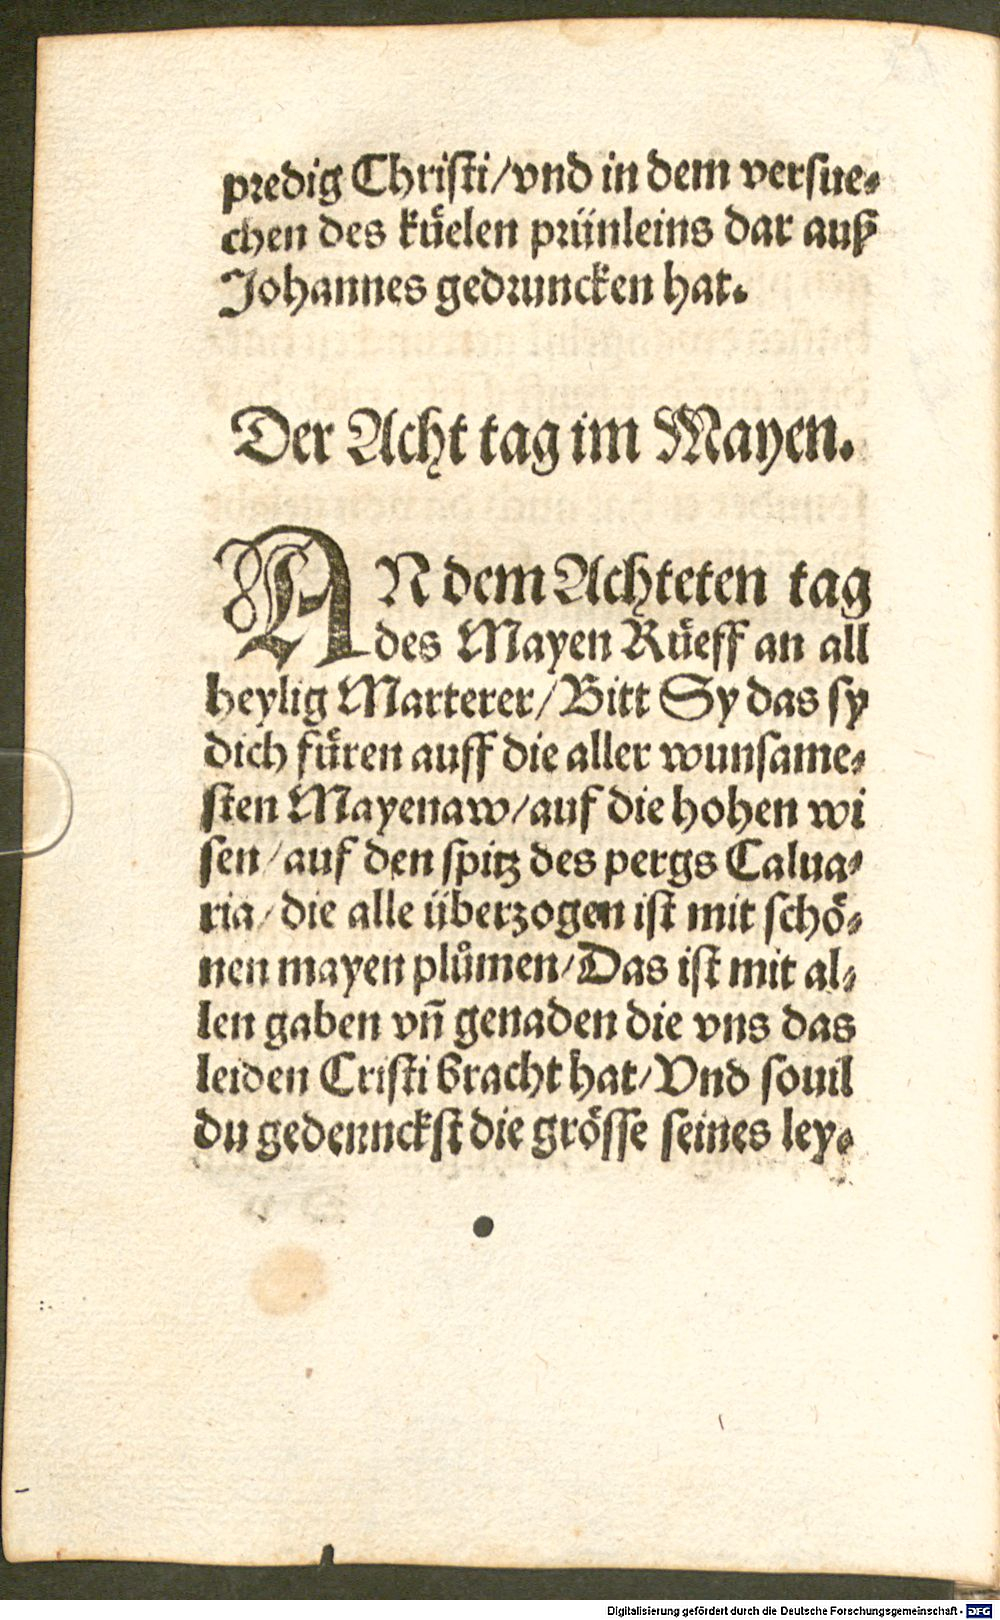 predig Christi/vnd in dem versue⸗
chen des kuͤelen prünleins dar auß
Johannes gedruncken hat.
Der Acht tag im Mayen.
AN dem Achteten tag
des Mayen Ruͤeff an all
heylig Marterer/Bitt Sy das sy
dich fuͤren auff die aller wunsame⸗
sten Mayenaw/auf die hohen wi
sen/auf den spitz des pergs Calua⸗
ria/die alle überzogen ist mit schoͤ⸗
nen mayen plůmen/Das ist mit al⸗
len gaben vñ genaden die vns das
leiden Cristi bracht hat/Vnd souil
du gedennckst die groͤsse seines ley⸗
Digitalisierung gefördert durch die Deutsche Forschungsgemeinschaft - DFG